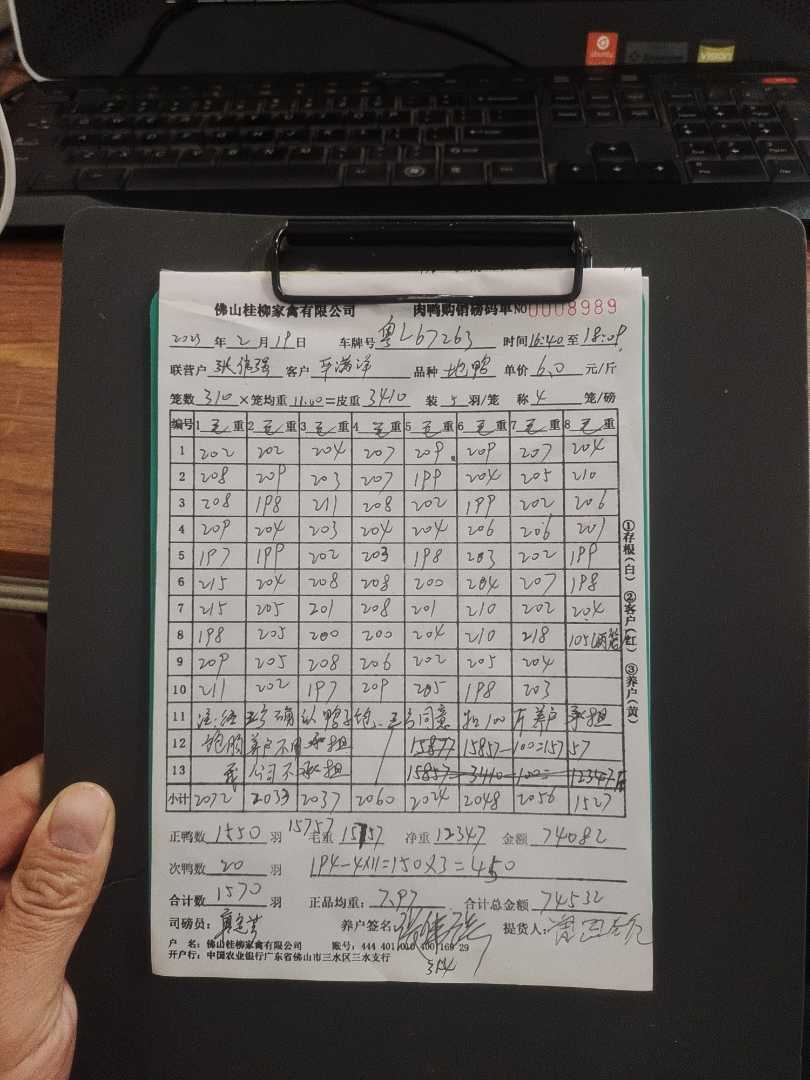 ubuntu
佛山桂柳家禽有限公司 肉鸭购销磅码单 NO 0008989
2023年2月19日 车牌号 粤L67263 时间16:40至18:09
联营户 张伟强 客户 品种 地鸭 单价 6.0 元/斤
笼数 310 ×笼均重 11.00 =皮重 3410 装 5 羽/笼 称 4 笼/磅
编号 1 毛重 2 毛重 3 毛重 4 毛重 5 毛重 6 毛重 7 毛重 8 毛重
1 202 202 204 207 209 209 207 204
2 208 209 203 207 199 204 205 210
3 208 198 211 208 202 199 202 206
4 209 204 203 204 204 206 206 201
5 197 199 202 203 198 203 202 199
6 215 204 208 208 200 204 207 198
7 215 205 201 208 201 210 202 204
8 198 205 200 200 204 210 218 105(两笼)
9 209 205 208 206 202 205 204
10 211 202 197 209 205 198 203
11 注:经 确认鸭子饱、 同意 扣100斤养户承担
12 饱的养户不用承担 15877 15857-100=15757
13 我公司不承担 15857-3410-100= 12347斤
小计 2072 2033 2037 2060 2024 2048 2056 1527
①存根(白) ②客户(红) ③养户(黄)
正鸭数 1550 羽 15757 毛重 15757 净重 12347 金额 74082
次鸭数 20 羽 194-4×11=150×3=450
合计数 1570 羽 正品均重: 7.97 合计总金额 74532
司磅员: 养户签名: 张伟强 提货人:
户 名: 佛山桂柳家禽有限公司 账号: 444 401 010 400 169 29
开户行: 中国农业银行广东省佛山市三水区三水支行